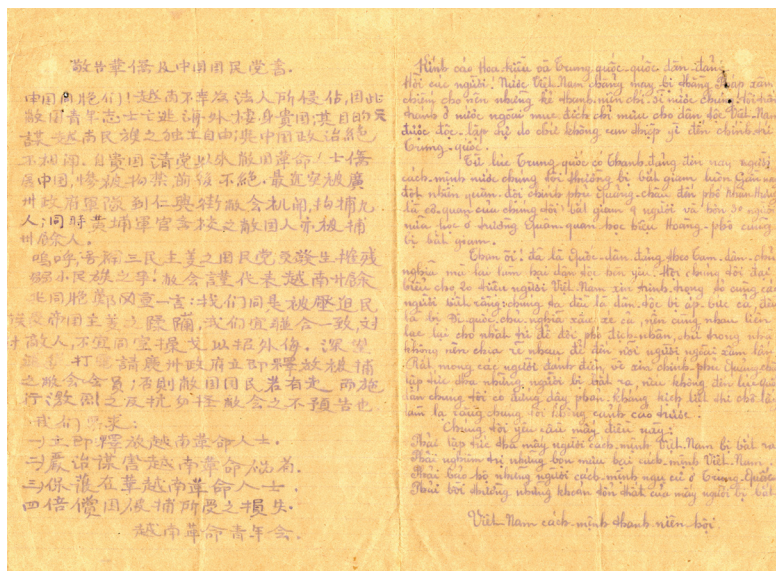 敬告華僑及中国国民党書.
中国同胞們！越南不幸為法人所侵佔,因此
敝国青年志士亡逃海外棲身貴国;其目的只
謀越南民族之独立自由,與中国政治絶
不相闻.自貴国清党以外敝国革命人士僑
居中国,惨被拘禁前後不絶.最近突被廣
州政府軍隊到仁興街敝会机関,拘捕九
人;同時黄埔軍官學校之敝国人亦被捕
卅餘人.
嗚呼,
三民主義之国民党发生摧残
弱小民族之事！敝会謹代表越南廿餘
兆同胞鄭重一言:我们同是被壓迫民
族受帝国主義之蹂躪,我们宜聯合一致,对
敵人,不宜同室操戈以招外侮.深望
打電請廣州政府立即釋放被捕
之敝会会員;否則敝国国民若有
行激烈之反抗勿怪敝会之不預告也
我们要求:
一)立即釋放越南革命人士.
二)嚴治謀害越南革命
三)保護在華越南革命人士.
四倍償因被捕所受之損失.
越南革命青年会.
Kính cáo Hoa-kiều và Trung-quốc quốc-dân-đảng
Hỡi các người! Nước Việt-Nam chẳng may bị thằng Pháp xâm
chiếm cho nên những kẻ thanh-niên chí-sĩ nước chúng tôi
thành ở nước ngoài mục đích chỉ mưu cho dân tộc Việt-Nam
được độc-lập tự do chứ không can thiệp gì đến chính-trị
Trung-quốc.
Từ lúc Trung-quốc có Thanh-đảng đến nay người
cách-mình nước chúng tôi thường bị bắt giam luôn. Gần nay
đột nhiên quân-đội chính phủ Quảng-châu đến phố Nhân-
là cơ-quan của chúng tôi bắt giam 9 người và hơn 30 người
nữa học ở trường Quan-quan học hiệu Hoàng-phố cũng
bị bắt giam.
Than ôi! đã là Quốc-dân-đảng theo Tam-dân-chủ
nghĩa mà lại làm hại dân tộc hèn yếu. Hội chúng tôi đại
biểu cho 20 triệu người Việt-Nam xin kính trọng tỏ cùng các
người biết rằng: chúng ta đều là dân-tộc bị áp-bức cả, đều
là bị đế-quốc chủ-nghĩa xâu xé cả, nên cùng nhau liên
lạc lại cho nhất trí để đối phó địch-nhân, chứ trong nhà
không nên chia rẽ nhau để đến nỗi người ngoài xâm lấn.
Rất mong các người đánh điện về xin chính-phủ Quảng-châu
lập tức tha những người bị bắt ra, nếu không đến lúc
dân chúng tôi có đứng dậy phản kháng kịch liệt thì chớ lấy
làm lạ rằng chúng tôi không cảnh cáo trước.
Chúng tôi yêu cầu mấy điều này:
Phải lập tức tha mấy người cách-mình Việt-Nam bị bắt ra.
Phải nghiêm trị những bọn mưu hại cách-mình Việt-Nam.
Phải bảo hộ những người cách-mình ngụ cư ở Trung-Quốc
Phải bồi thường những khoản tổn thất của mấy người bị bắt.
Việt-Nam cách-mình thanh-niên hội